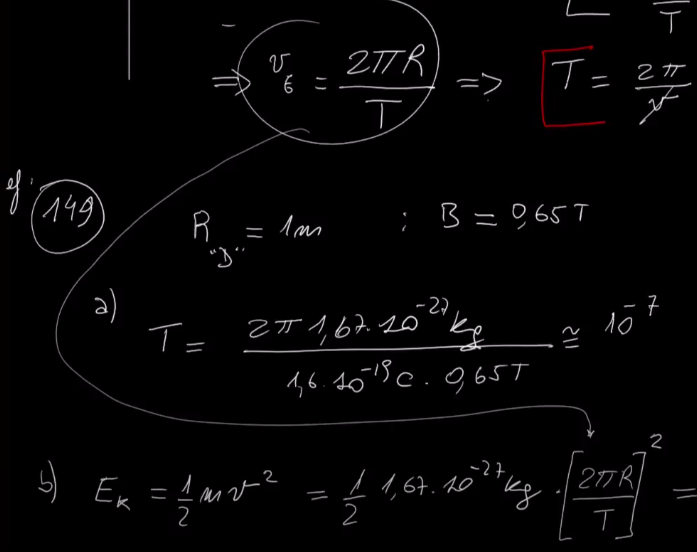 ⇒ v_G = 2πR / T ⇒ T = 2π / v
T
ej. 149
R_"D" = 1m ; B = 0,65T
a) T = 2π 1,67·10^-27 kg / 1,6·10^-19 C · 0,65T ≅ 10^-7
b) E_K = 1/2 m v^2 = 1/2 1,67·10^-27 kg · [2πR / T]^2 =